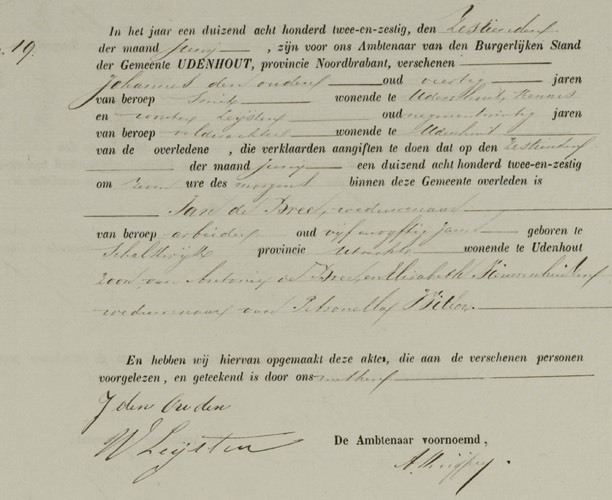 19.
In het jaar een duizend acht honderd twee-en-zestig, den Zestienden
der maand Junij, zijn voor ons Ambtenaar van den Burgerlijken Stand
der Gemeente UDENHOUT, provincie Noordbrabant, verschenen
Johannes den Ouden oud veertig jaren
van beroep Smid wonende te Udenhout, Kennis
en Leijsten oud jaren
van beroep veldwachter wonende te Udenhout
van de overledene, die verklaarden aangiften te doen dat op den Zestienden
der maand Junij een duizend acht honderd twee-en-zestig
om zeven ure des morgens binnen deze Gemeente overleden is
Jan de Bree, weduwenaar
van beroep arbeider oud vijf en vijftig jaren geboren te
Schalkwijk provincie Utrecht wonende te Udenhout
zoon van Antonie de Bree, en Elisabeth
weduwenaar van Petronella
En hebben wij hiervan opgemaakt deze akte, die aan de verschenen personen
voorgelezen, en geteekend is door ons met hen
J den Ouden
W Leijsten
De Ambtenaar voornoemd,